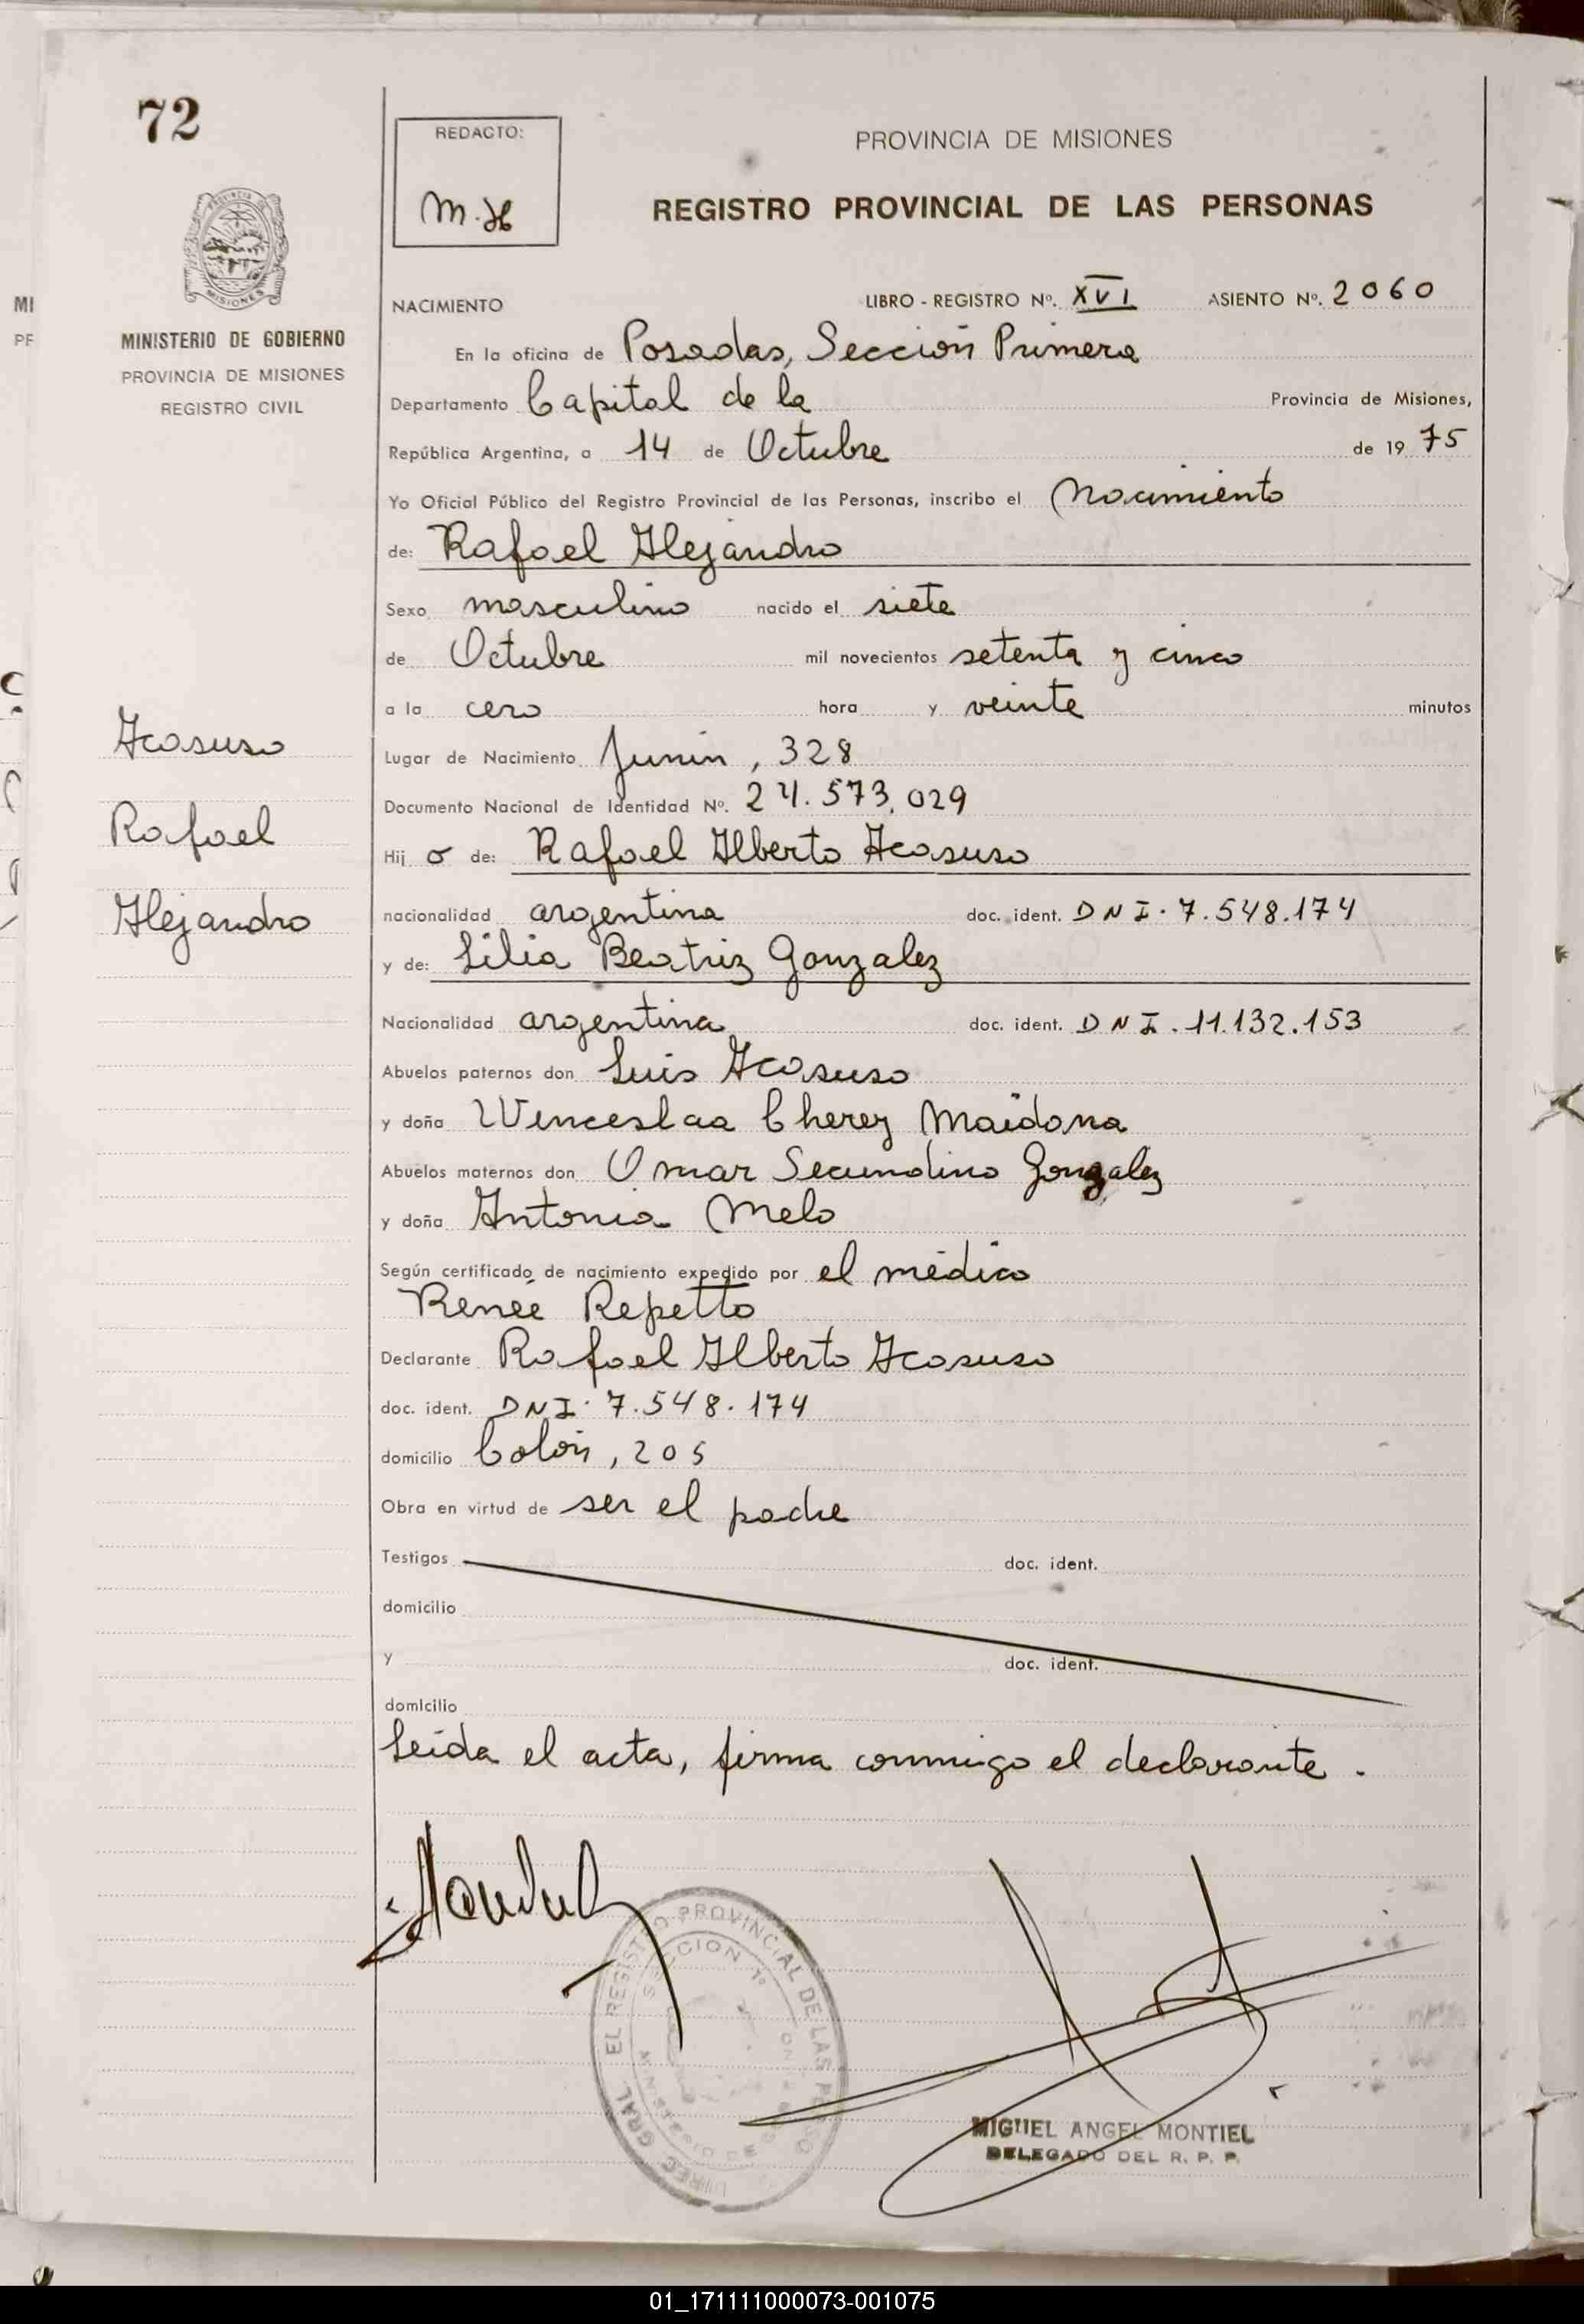 72
REDACTO:
M.H
PROVINCIA DE MISIONES
REGISTRO PROVINCIAL DE LAS PERSONAS
MISIONES
MI
PF
MINISTERIO DE GOBIERNO
PROVINCIA DE MISIONES
REGISTRO CIVIL
NACIMIENTO LIBRO - REGISTRO Nº. XVI ASIENTO Nº. 2060
En la oficina de Posadas, Sección Primera
Departamento Capital de la Provincia de Misiones,
República Argentina, a 14 de Octubre de 1975
Yo Oficial Público del Registro Provincial de las Personas, inscribo el Nacimiento
de: Rafael Alejandro
Sexo masculino nacido el siete
de Octubre mil novecientos setenta y cinco
a la cero hora y veinte minutos
Acosuso
Rafael
Alejandro
Lugar de Nacimiento Junín, 328
Documento Nacional de Identidad Nº. 24.573.029
Hij o de: Rafael Alberto Acosuso
nacionalidad argentina doc. ident. DNI. 7.548.174
y de: Lilia Beatriz Gonzalez
Nacionalidad argentina doc. ident. DNI. 11.132.153
Abuelos paternos don Luis Acosuso
y doña Wenceslaa Cherez Maidana
Abuelos maternos don Omar Secundino Gonzalez
y doña Antonia Melo
Según certificado de nacimiento expedido por el médico
Renée Repetto
Declarante Rafael Alberto Acosuso
doc. ident. DNI. 7.548.174
domicilio Colón, 205
Obra en virtud de ser el padre
Testigos doc. ident.
domicilio
y doc. ident.
domicilio
Leída el acta, firma conmigo el declarante.
EL REGISTRO PROVINCIAL DE LAS PERSO
SECCION 1º
MINISTERIO DE GO
DIREC. GRAL.
MIGUEL ANGEL MONTIEL
DELEGADO DEL R. P. P.
01_171111000073-001075